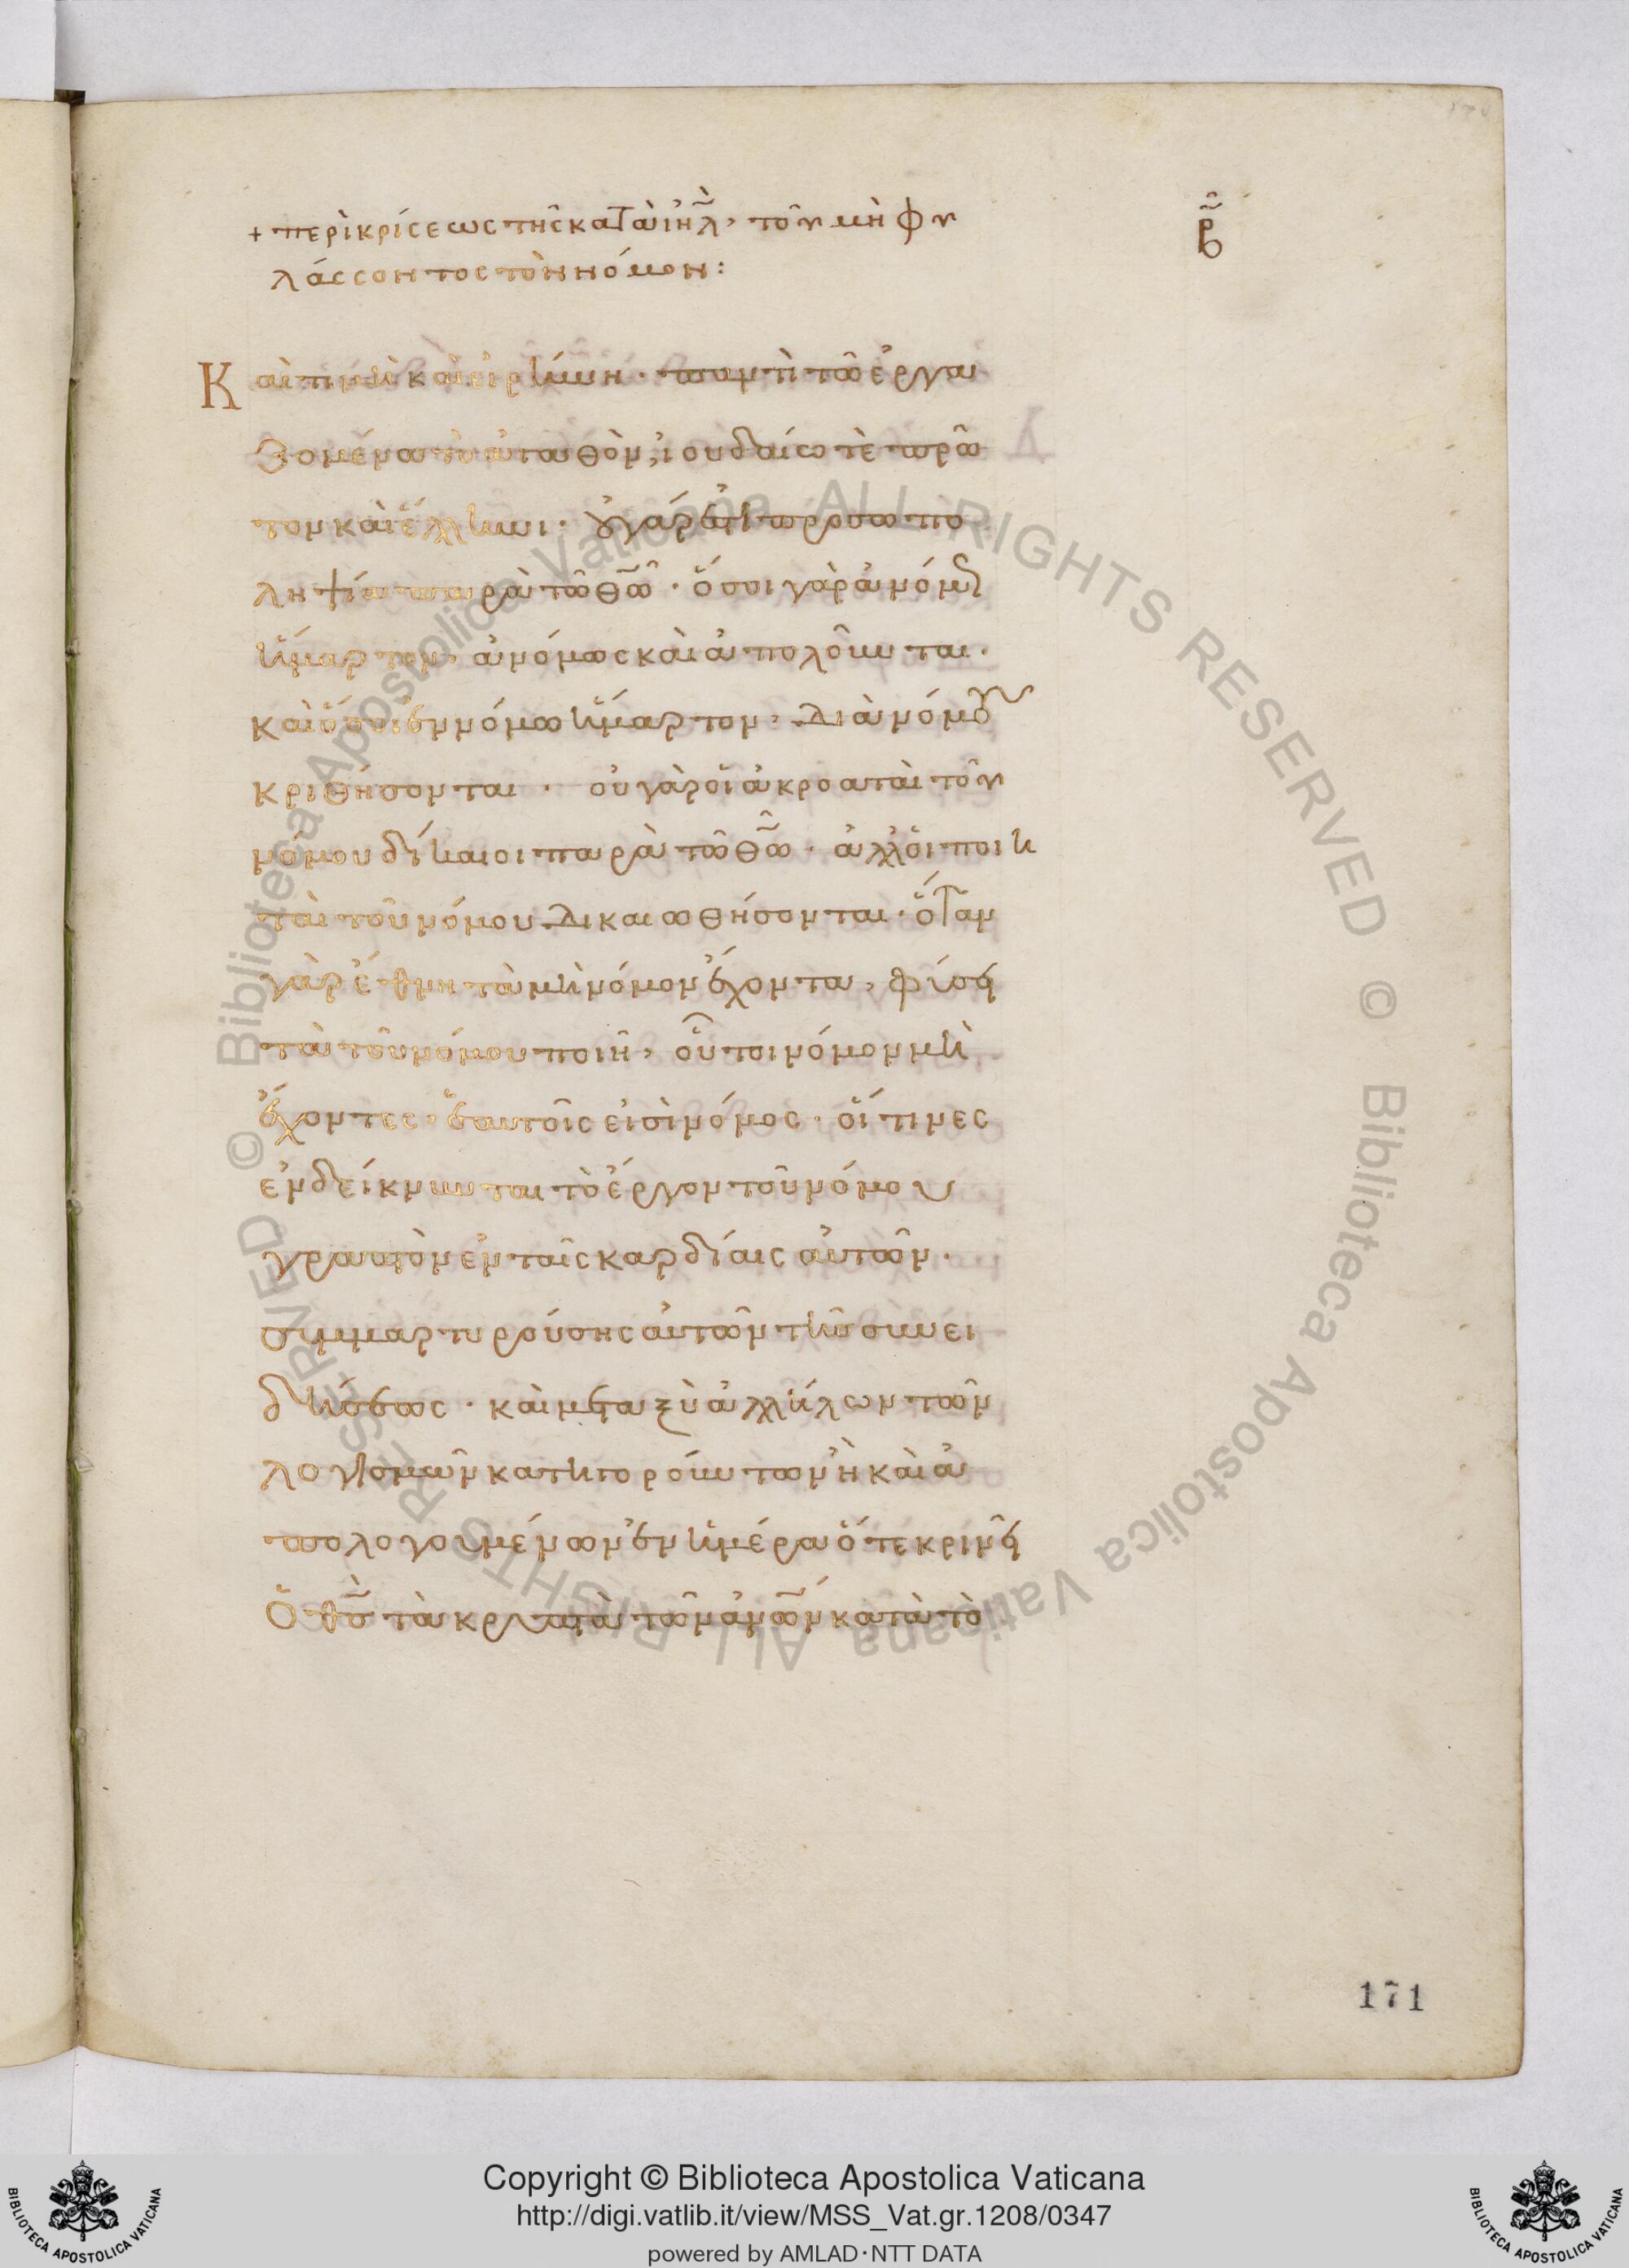 + περὶ κρίσεως τῆς κατὰ ἰηλ, τοῦ μὴ φυ
λάσσοντος τὸν νόμον:
Καὶ τιμὴ καὶ εἰρήνη · παντὶ τῶ ἐργα
ζομένω τὸ ἀγαθὸν, ἰουδαίω τὲ πρῶ
τον καὶ ἕλληνι · οὐ γάρ ἐστι προσωπο
ληψία παρὰ τῶ θῶ · ὅσοι γὰρ ἀνόμως
ἥμαρτον, ἀνόμως καὶ ἀπολοῦνται ·
καὶ ὅσοι ἐν νόμω ἥμαρτον, διὰ νόμου
κριθήσονται · οὐ γὰρ οἱ ἀκροαταὶ τοῦ
νόμου δίκαιοι παρὰ τῶ θῶ · ἀλλ' οἱ ποιη
ταὶ τοῦ νόμου δικαιωθήσονται · ὅταν
γὰρ ἔθνη τὰ μὴ νόμον ἔχοντα, φύσει
τὰ τοῦ νόμου ποιῆ, οὗτοι νόμον μὴ
ἔχοντες · ἑαυτοῖς εἰσὶ νόμος · οἵτινες
ἐνδείκνυνται τὸ ἔργον τοῦ νόμου
γραπτὸν ἐν ταῖς καρδίαις αὐτῶν ·
συμμαρτυρούσης αὐτῶν τῆς συνει
δήσεως · καὶ μεταξὺ ἀλλήλων τῶν
λογισμῶν κατηγορούντων ἢ καὶ ἀ
πολογουμένων ἐν ἡμέρα ὅτε κρινεῖ
ὁ θς τὰ κρυπτὰ τῶν ἀνων κατὰ τὸ
171
Copyright © Biblioteca Apostolica Vaticana
http://digi.vatlib.it/view/MSS_Vat.gr.1208/0347
powered by AMLAD·NTT DATA
BIBLIOTECA APOSTOLICA VATICANA
BIBLIOTECA APOSTOLICA VATICANA
© Biblioteca Apostolica Vaticana ALL RIGHTS RESERVED
© Biblioteca Apostolica Vaticana ALL RIGHTS RESERVED